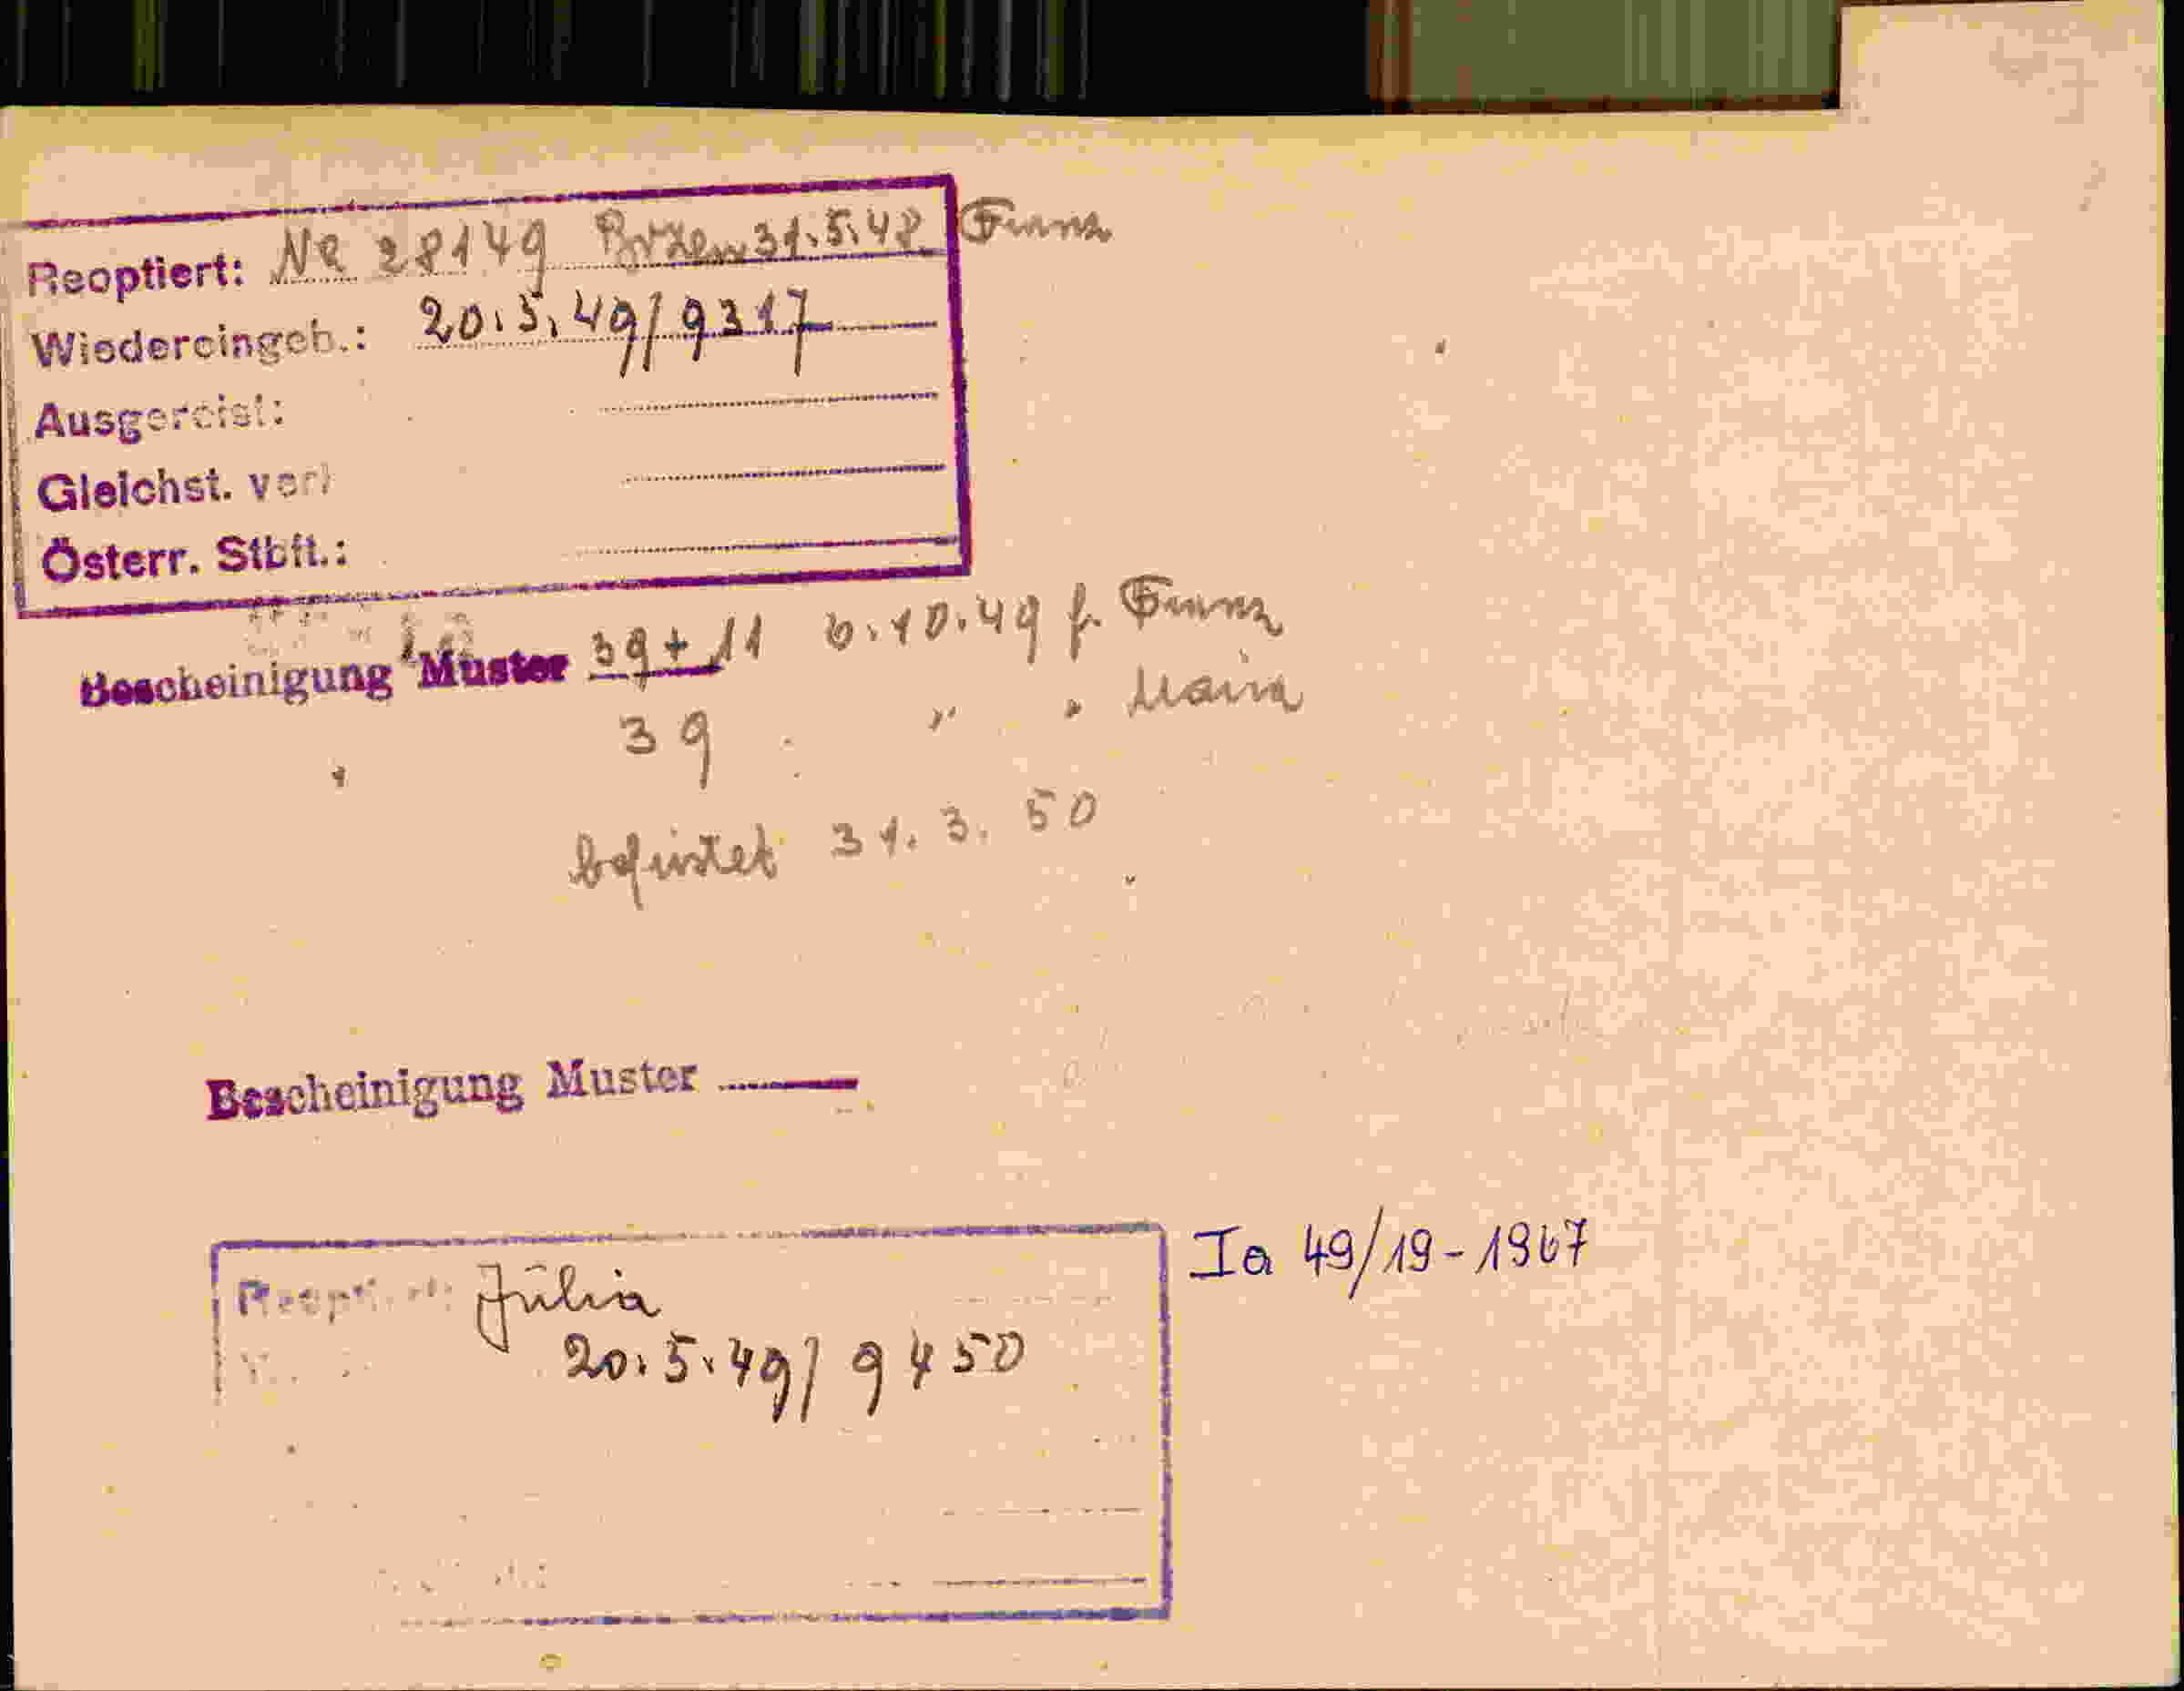 Reoptiert: NR 28149 Bozen 31.5.48 Franz
Wiedereingeb.: 20.5.49/9317
Ausgereist:
Gleichst. verl
Österr. Stbft.:
Bescheinigung Muster 39 + 11 6.10.49 f. Franz
39 " " Maria
befristet 31.3.50
Bescheinigung Muster
Reoptiert: Júlia
20.5.49/ 9450
Ia 49/19-1967